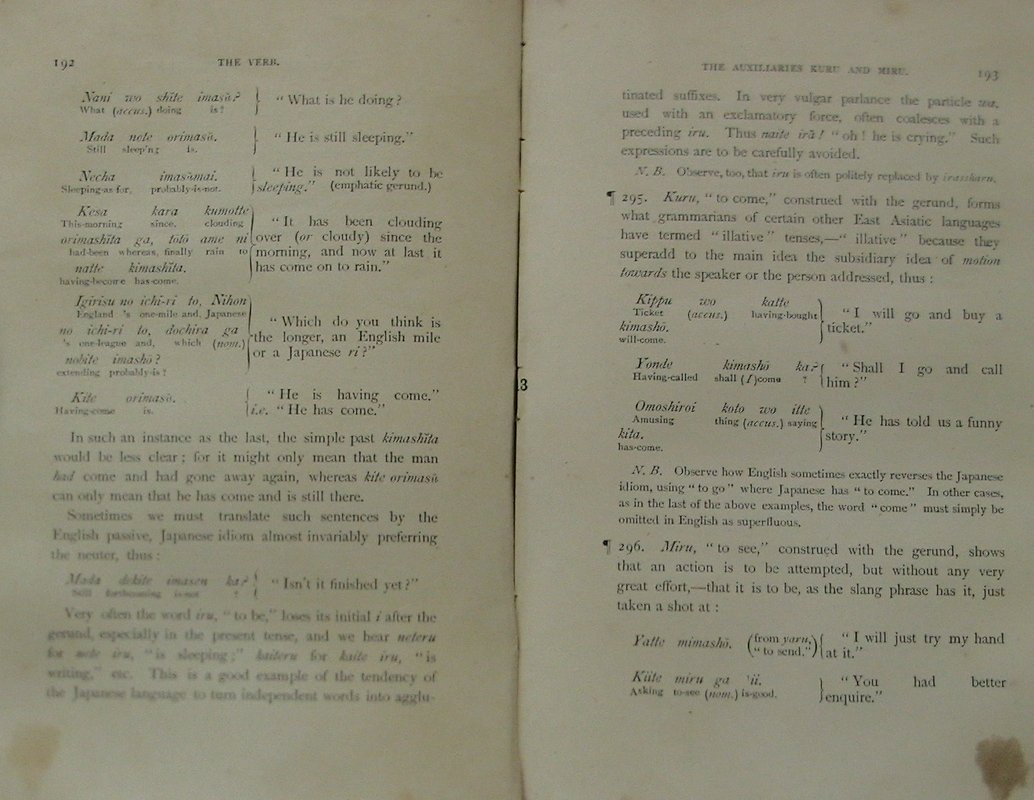 192
THE VERB.
Nani wo shite imasŭ?
What (accus.) doing is?
"What is he doing?
Mada nete orimasŭ.
Still sleep'ng is.
"He is still sleeping."
Necha imasŭmai.
Sleeping-as for, probably-is-not.
"He is not likely to be
sleeping." (emphatic gerund.)
Kesa kara kumotte
This-morning since, clouding
orimashĭta ga, tōtō ame ni
had-been whereas, finally rain to
natte kimashĭta.
having-become has-come.
"It has been clouding
over (or cloudy) since the
morning, and now at last it
has come on to rain."
Igirisu no ichi-ri to, Nihon
England 's one-mile and, Japanese
no ichi-ri to, dochira ga
's one-league and, which (nom.)
nobite imashō?
extending probably-is?
"Which do you think is
the longer, an English mile
or a Japanese ri?"
Kite orimasŭ.
Having-come is.
"He is having come."
i.e. "He has come."
In such an instance as the last, the simple past kimashĭta
would be less clear; for it might only mean that the man
had come and had gone away again, whereas kite orimasŭ
can only mean that he has come and is still there.
Sometimes we must translate such sentences by the
English passive, Japanese idiom almost invariably preferring
the neuter, thus:
Mada dekite imasen ka?
Still forthcoming is-not ?
"Isn't it finished yet?"
Very often the word iru, "to be," loses its initial i after the
gerund, especially in the present tense, and we hear neteru
for nete iru, "is sleeping;" kaiteru for kaite iru, "is
writing," etc. This is a good example of the tendency of
the Japanese language to turn independent words into agglu-
13
THE AUXILIARIES KURU AND MIRU.
193
tinated suffixes. In very vulgar parlance the particle wa,
used with an exclamatory force, often coalesces with a
preceding iru. Thus naite irā! "oh! he is crying." Such
expressions are to be carefully avoided.
N. B. Observe, too, that iru is often politely replaced by irassharu.
¶ 295. Kuru, "to come," construed with the gerund, forms
what grammarians of certain other East Asiatic languages
have termed "illative" tenses,—"illative" because they
superadd to the main idea the subsidiary idea of motion
towards the speaker or the person addressed, thus:
Kippu wo katte
Ticket (accus.) having-bought
kimashō.
will-come.
"I will go and buy a
ticket."
Yonde kimashō ka?
Having-called shall (I) come ?
"Shall I go and call
him?"
Omoshiroi koto wo itte
Amusing thing (accus.) saying
kita.
has-come.
"He has told us a funny
story."
N. B. Observe how English sometimes exactly reverses the Japanese
idiom, using "to go" where Japanese has "to come." In other cases,
as in the last of the above examples, the word "come" must simply be
omitted in English as superfluous.
¶ 296. Miru, "to see," construed with the gerund, shows
that an action is to be attempted, but without any very
great effort,—that it is to be, as the slang phrase has it, just
taken a shot at:
Yatte mimashō.
(from yaru,
"to send.")
"I will just try my hand
at it."
Kiite miru ga 'ii.
Asking to-see (nom.) is-good.
"You had better
enquire."